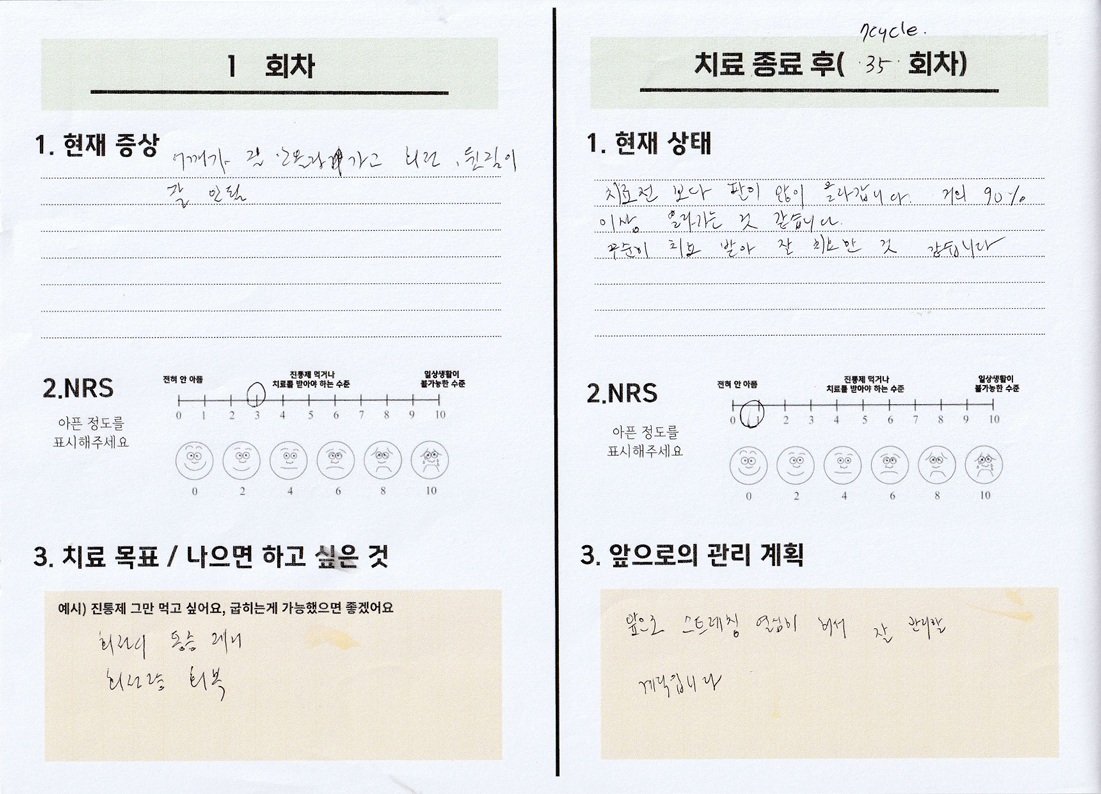 1 회차
1. 현재 증상
어깨가 잘 안올라가고 회전, 움직임이
잘 안됨
2.NRS
아픈 정도를
표시해주세요
전혀 안 아픔
진통제 먹거나
치료를 받아야 하는 수준
일상생활이
불가능한 수준
0 1 2 3 4 5 6 7 8 9 10
0 2 4 6 8 10
3. 치료 목표 / 나으면 하고 싶은 것
예시) 진통제 그만 먹고 싶어요, 굽히는게 가능했으면 좋겠어요
통증
회복
7cycle.
치료 종료 후( 35 회차)
1. 현재 상태
치료전 보다 팔이 많이 올라갑니다. 거의 90%
이상 올라가는 것 같습니다.
꾸준히 치료 받아 잘 치료한 것 같습니다
2.NRS
아픈 정도를
표시해주세요
전혀 안 아픔
진통제 먹거나
치료를 받아야 하는 수준
일상생활이
불가능한 수준
0 1 2 3 4 5 6 7 8 9 10
0 2 4 6 8 10
3. 앞으로의 관리 계획
앞으로 스트레칭 열심히 해서 잘 관리할
계획입니다